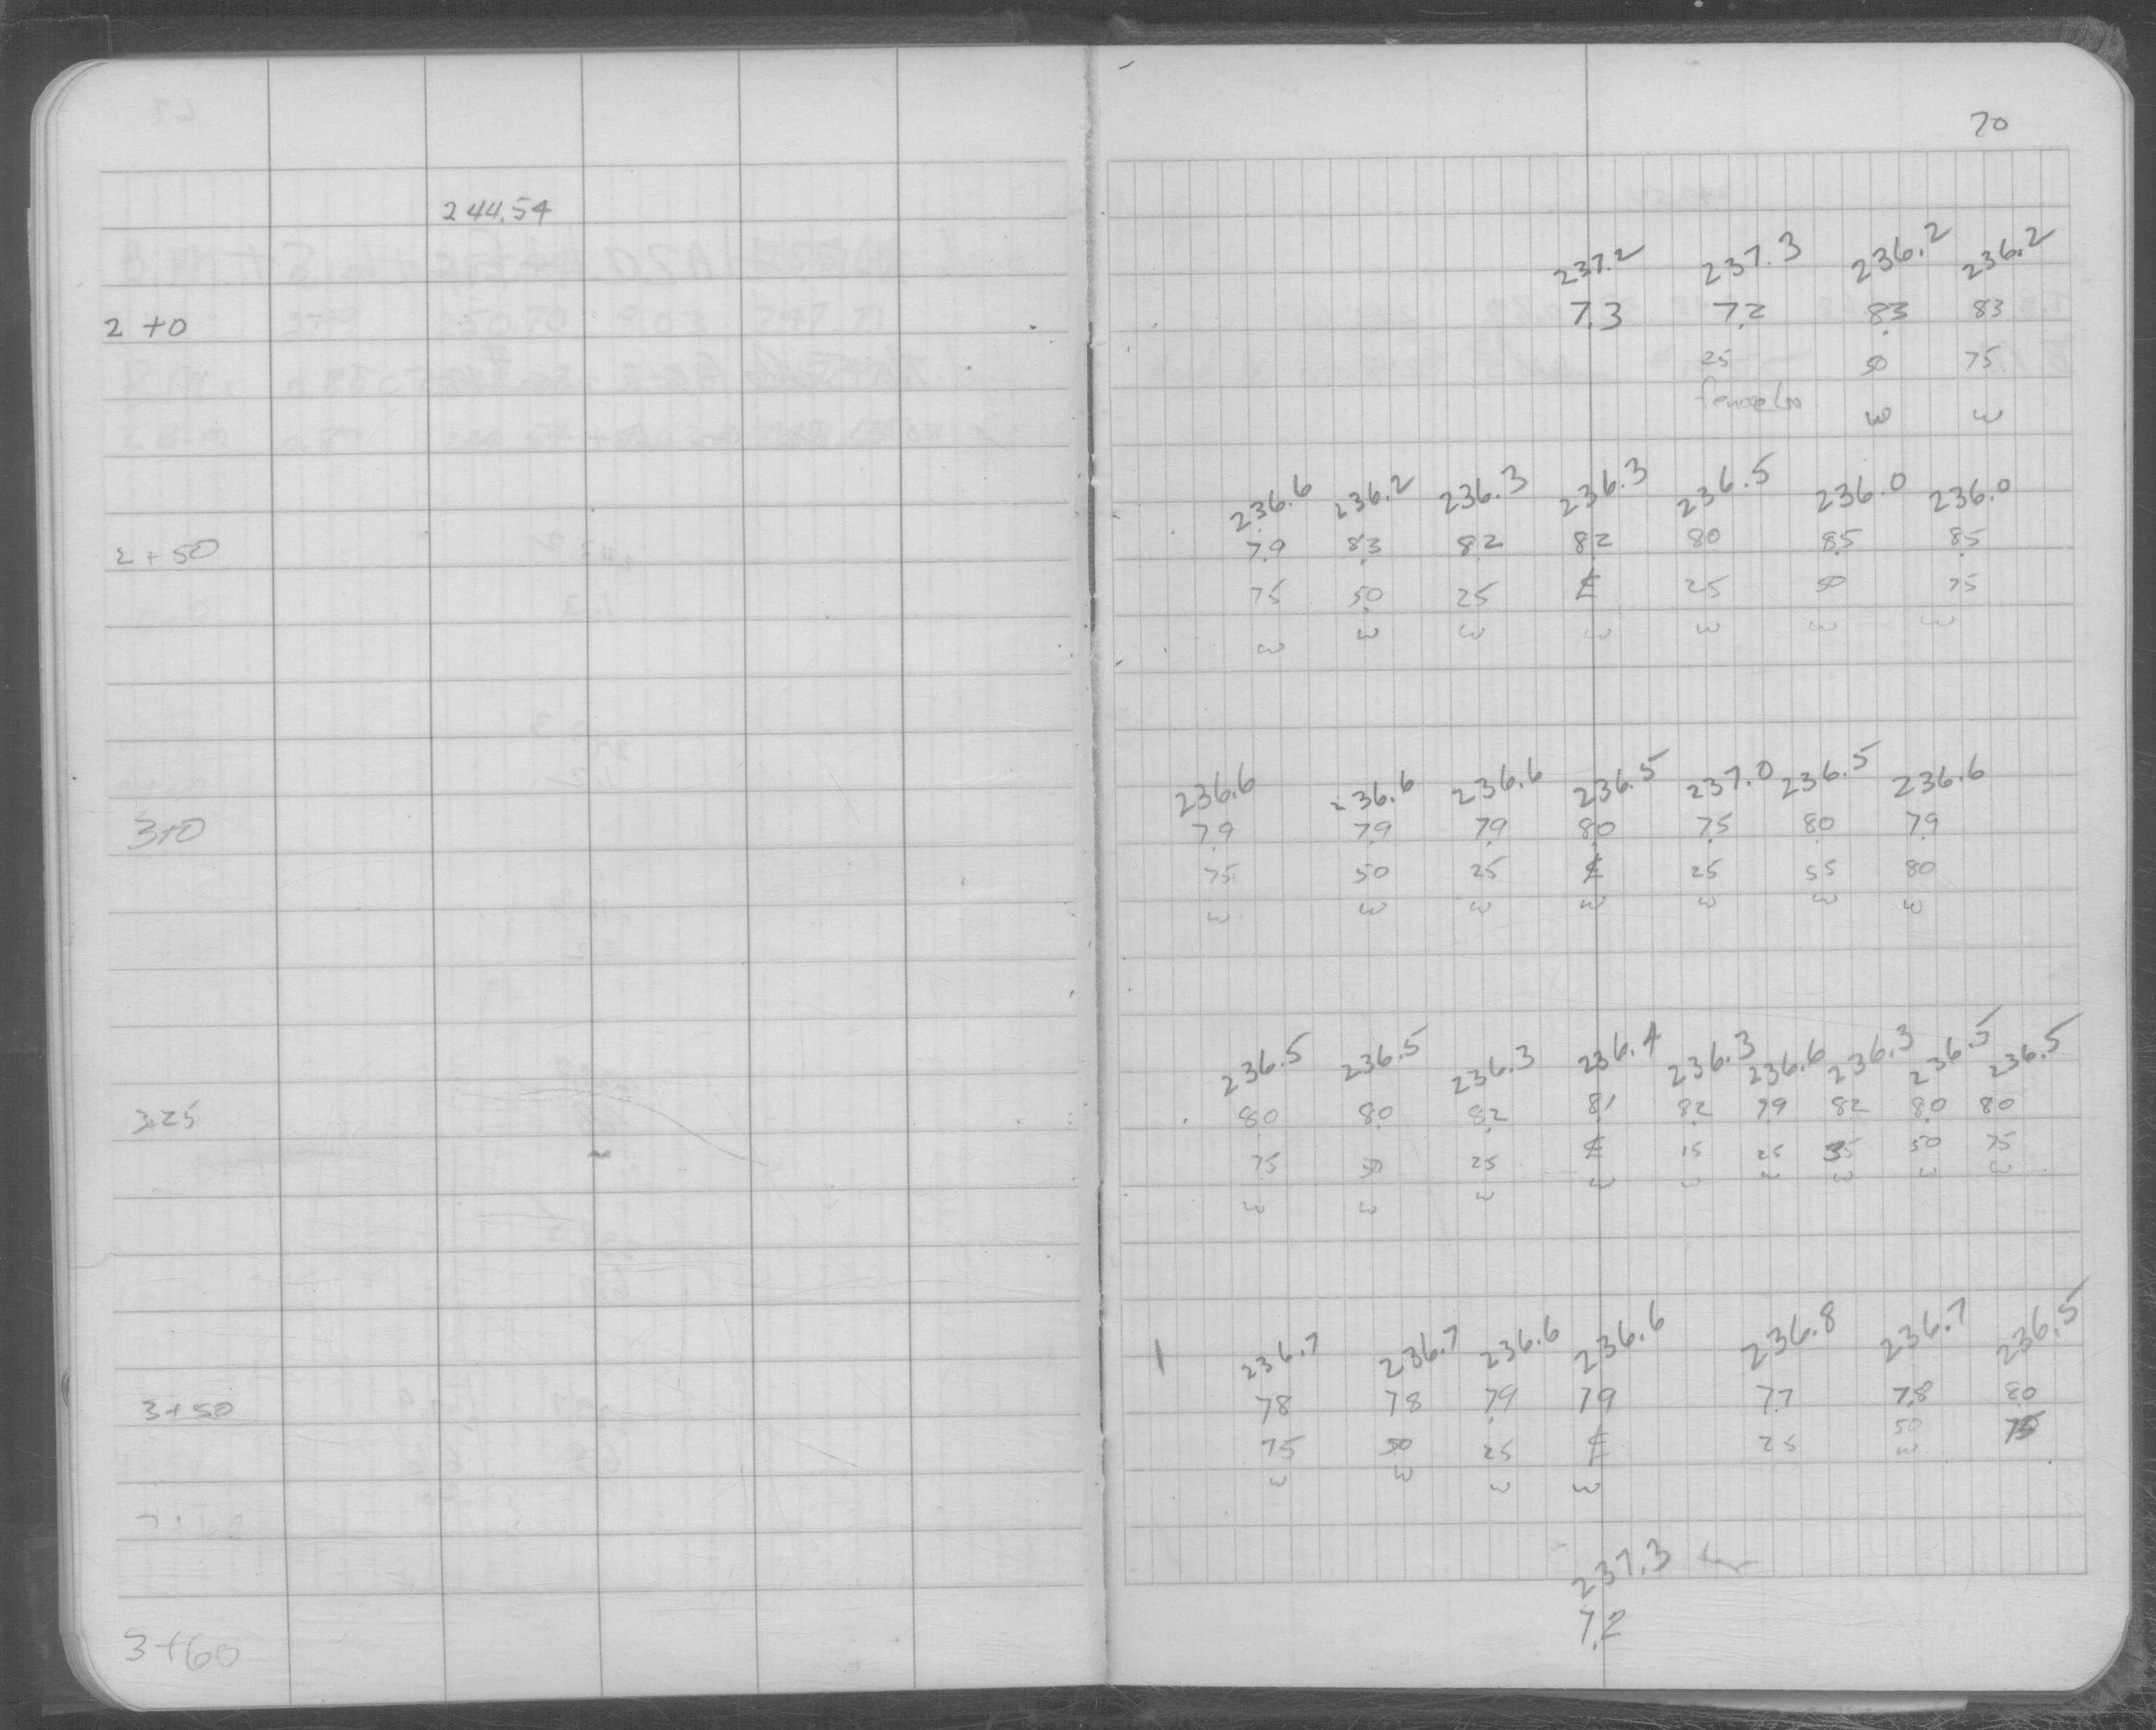 70
244.54
237.2 237.3 236.2 236.2
2 +0 7.3 7.2 8.3 83
25 50 75
fence Ln W W
236.6 236.2 236.3 236.3 236.5 236.0 236.0
2 + 50 7.9 8.3 8.2 8.2 80 8.5 8.5
75 50 25 ℄ 25 50 75
W W W W W W W
236.6 236.6 236.6 236.5 237.0 236.5 236.6
3+0 7.9 7.9 7.9 8.0 7.5 8.0 7.9
75 50 25 ℄ 25 55 80
W W W W W W W
236.5 236.5 236.3 236.4 236.3 236.6 236.3 236.5 236.5
3+25 8.0 8.0 8.2 8.1 8.2 7.9 8.2 8.0 80
75 50 25 ℄ 15 25 35 50 75
W W W W W W W W W
1 236.7 236.7 236.6 236.6 236.8 236.7 236.5
3+50 78 78 7.9 79 7.7 7.8 8.0
75 50 25 ℄ 25 50 75
W W W W W
237.3
3+60 7.2